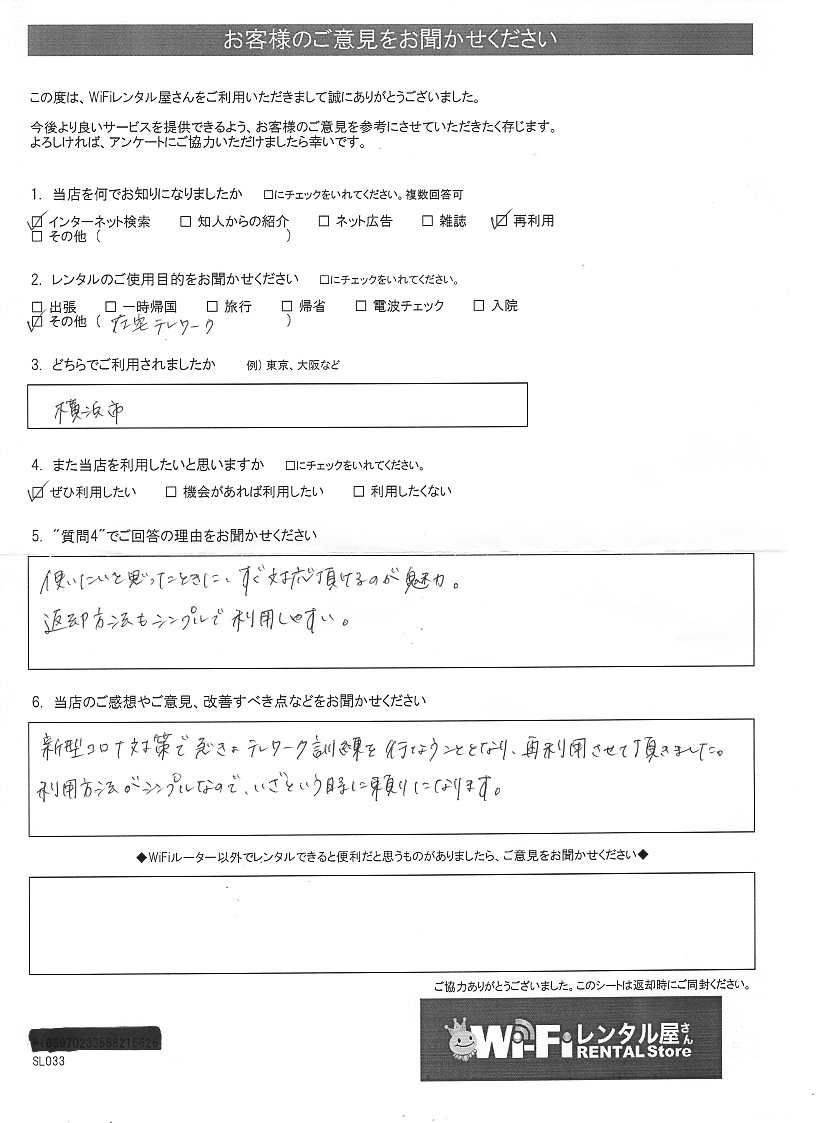 お客様のご意見をお聞かせください
この度は、WiFiレンタル屋さんをご利用いただきまして誠にありがとうございました。
今後より良いサービスを提供できるよう、お客様のご意見を参考にさせていただきたく存じます。
よろしければ、アンケートにご協力いただけましたら幸いです。
1. 当店を何でお知りになりましたか □にチェックをいれてください。複数回答可
☑ インターネット検索 □ 知人からの紹介 □ ネット広告 □ 雑誌 ☑ 再利用
□ その他 ( )
2. レンタルのご使用目的をお聞かせください □にチェックをいれてください。
□ 出張 □ 一時帰国 □ 旅行 □ 帰省 □ 電波チェック □ 入院
☑ その他 ( 在宅テレワーク )
3. どちらでご利用されましたか 例) 東京、大阪など
横浜市
4. また当店を利用したいと思いますか □にチェックをいれてください。
☑ ぜひ利用したい □ 機会があれば利用したい □ 利用したくない
5. "質問4"でご回答の理由をお聞かせください
使いたいと思ったときに、すぐ対応頂けるのが魅力。
返却方法もシンプルで利用しやすい。
6. 当店のご感想やご意見、改善すべき点などをお聞かせください
新型コロナ対策で急きょテレワーク訓練を行なうこととなり、再利用させて頂きました。
利用方法がシンプルなので、いざという時に頼りになります。
◆WiFiルーター以外でレンタルできると便利だと思うものがありましたら、ご意見をお聞かせください◆
ご協力ありがとうございました。このシートは返却時にご同封ください。
SL033
Wi-Fiレンタル屋さん
RENTAL Store